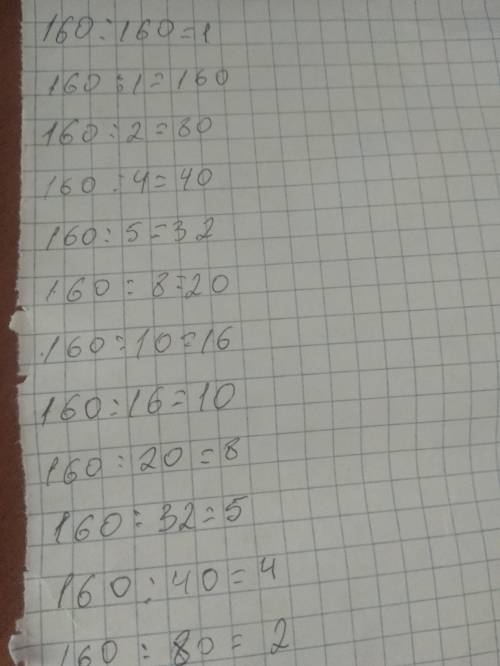 160:160=1
160:1=160
160:2=80
160:4=40
160:5=32
160:8=20
160:10=16
160:16=10
160:20=8
160:32=5
160:40=4
160:80=2